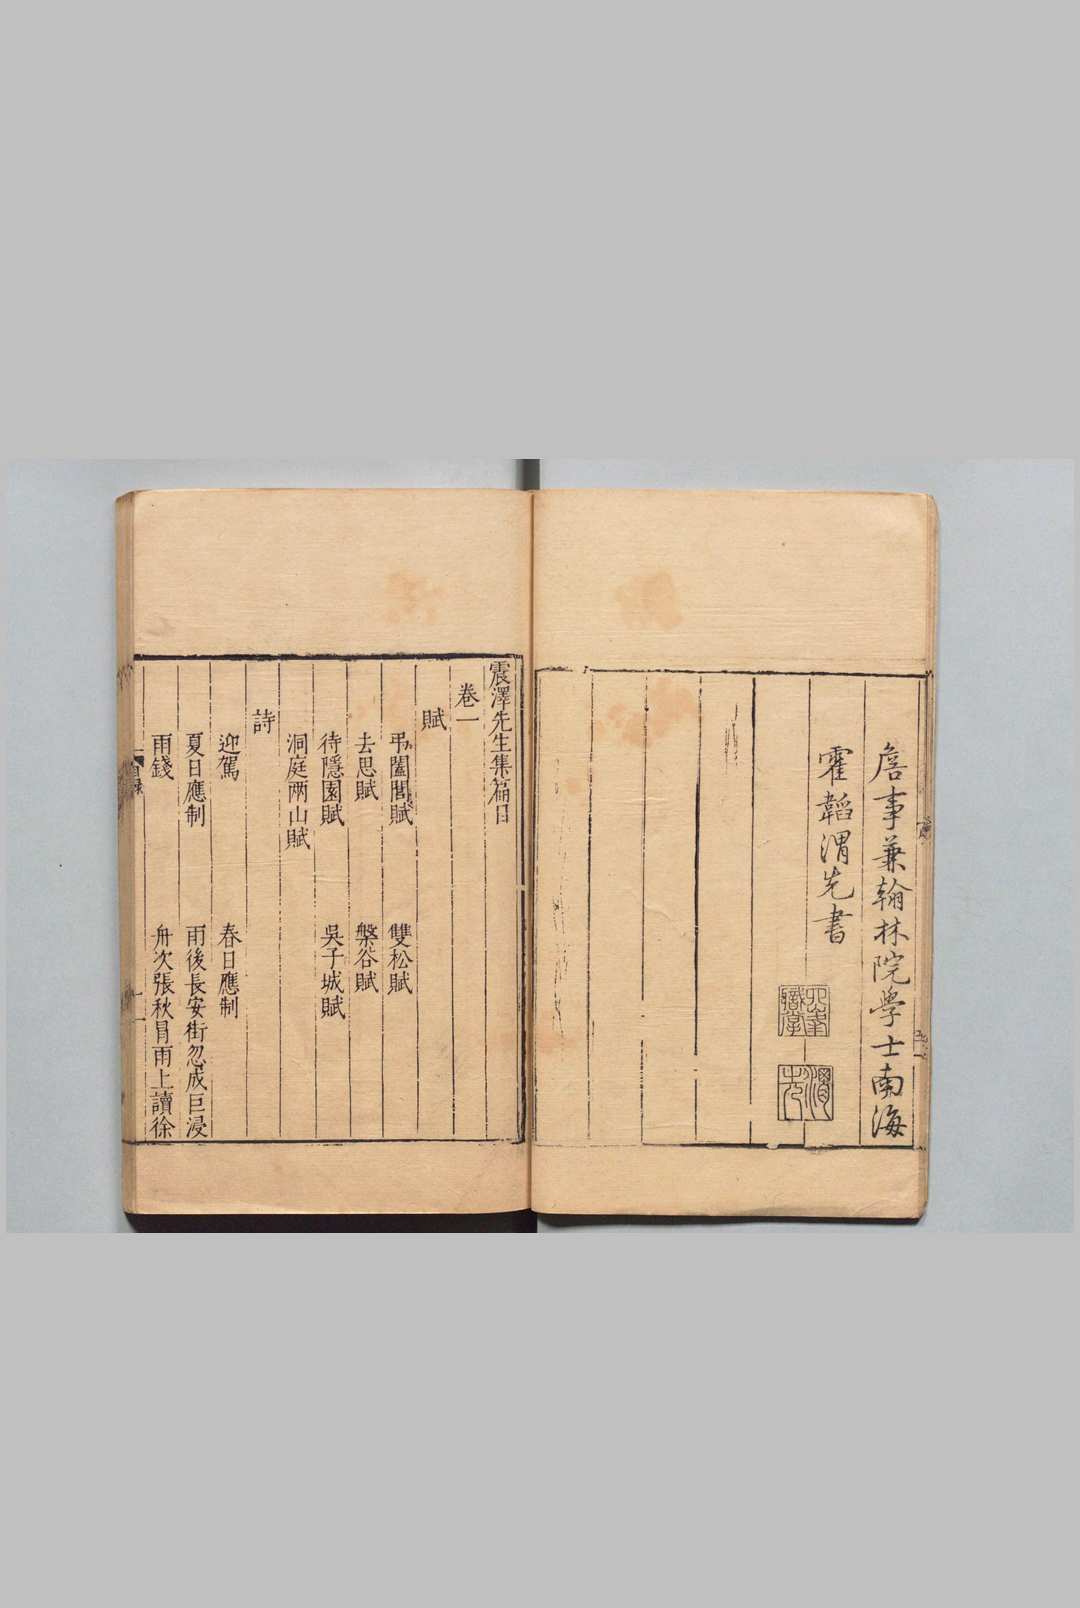 詹事兼翰林院學士南海
霍韜渭先書
渭先
震澤先生集篇目
卷一
賦
弔闔閭賦　雙松賦
去思賦　槃谷賦
待隱園賦　吳子城賦
洞庭兩山賦
詩
迎駕　春日應制
夏日應制　雨後長安街忽成巨浸
雨錢　舟次張秋冒雨上讀徐
目錄
一